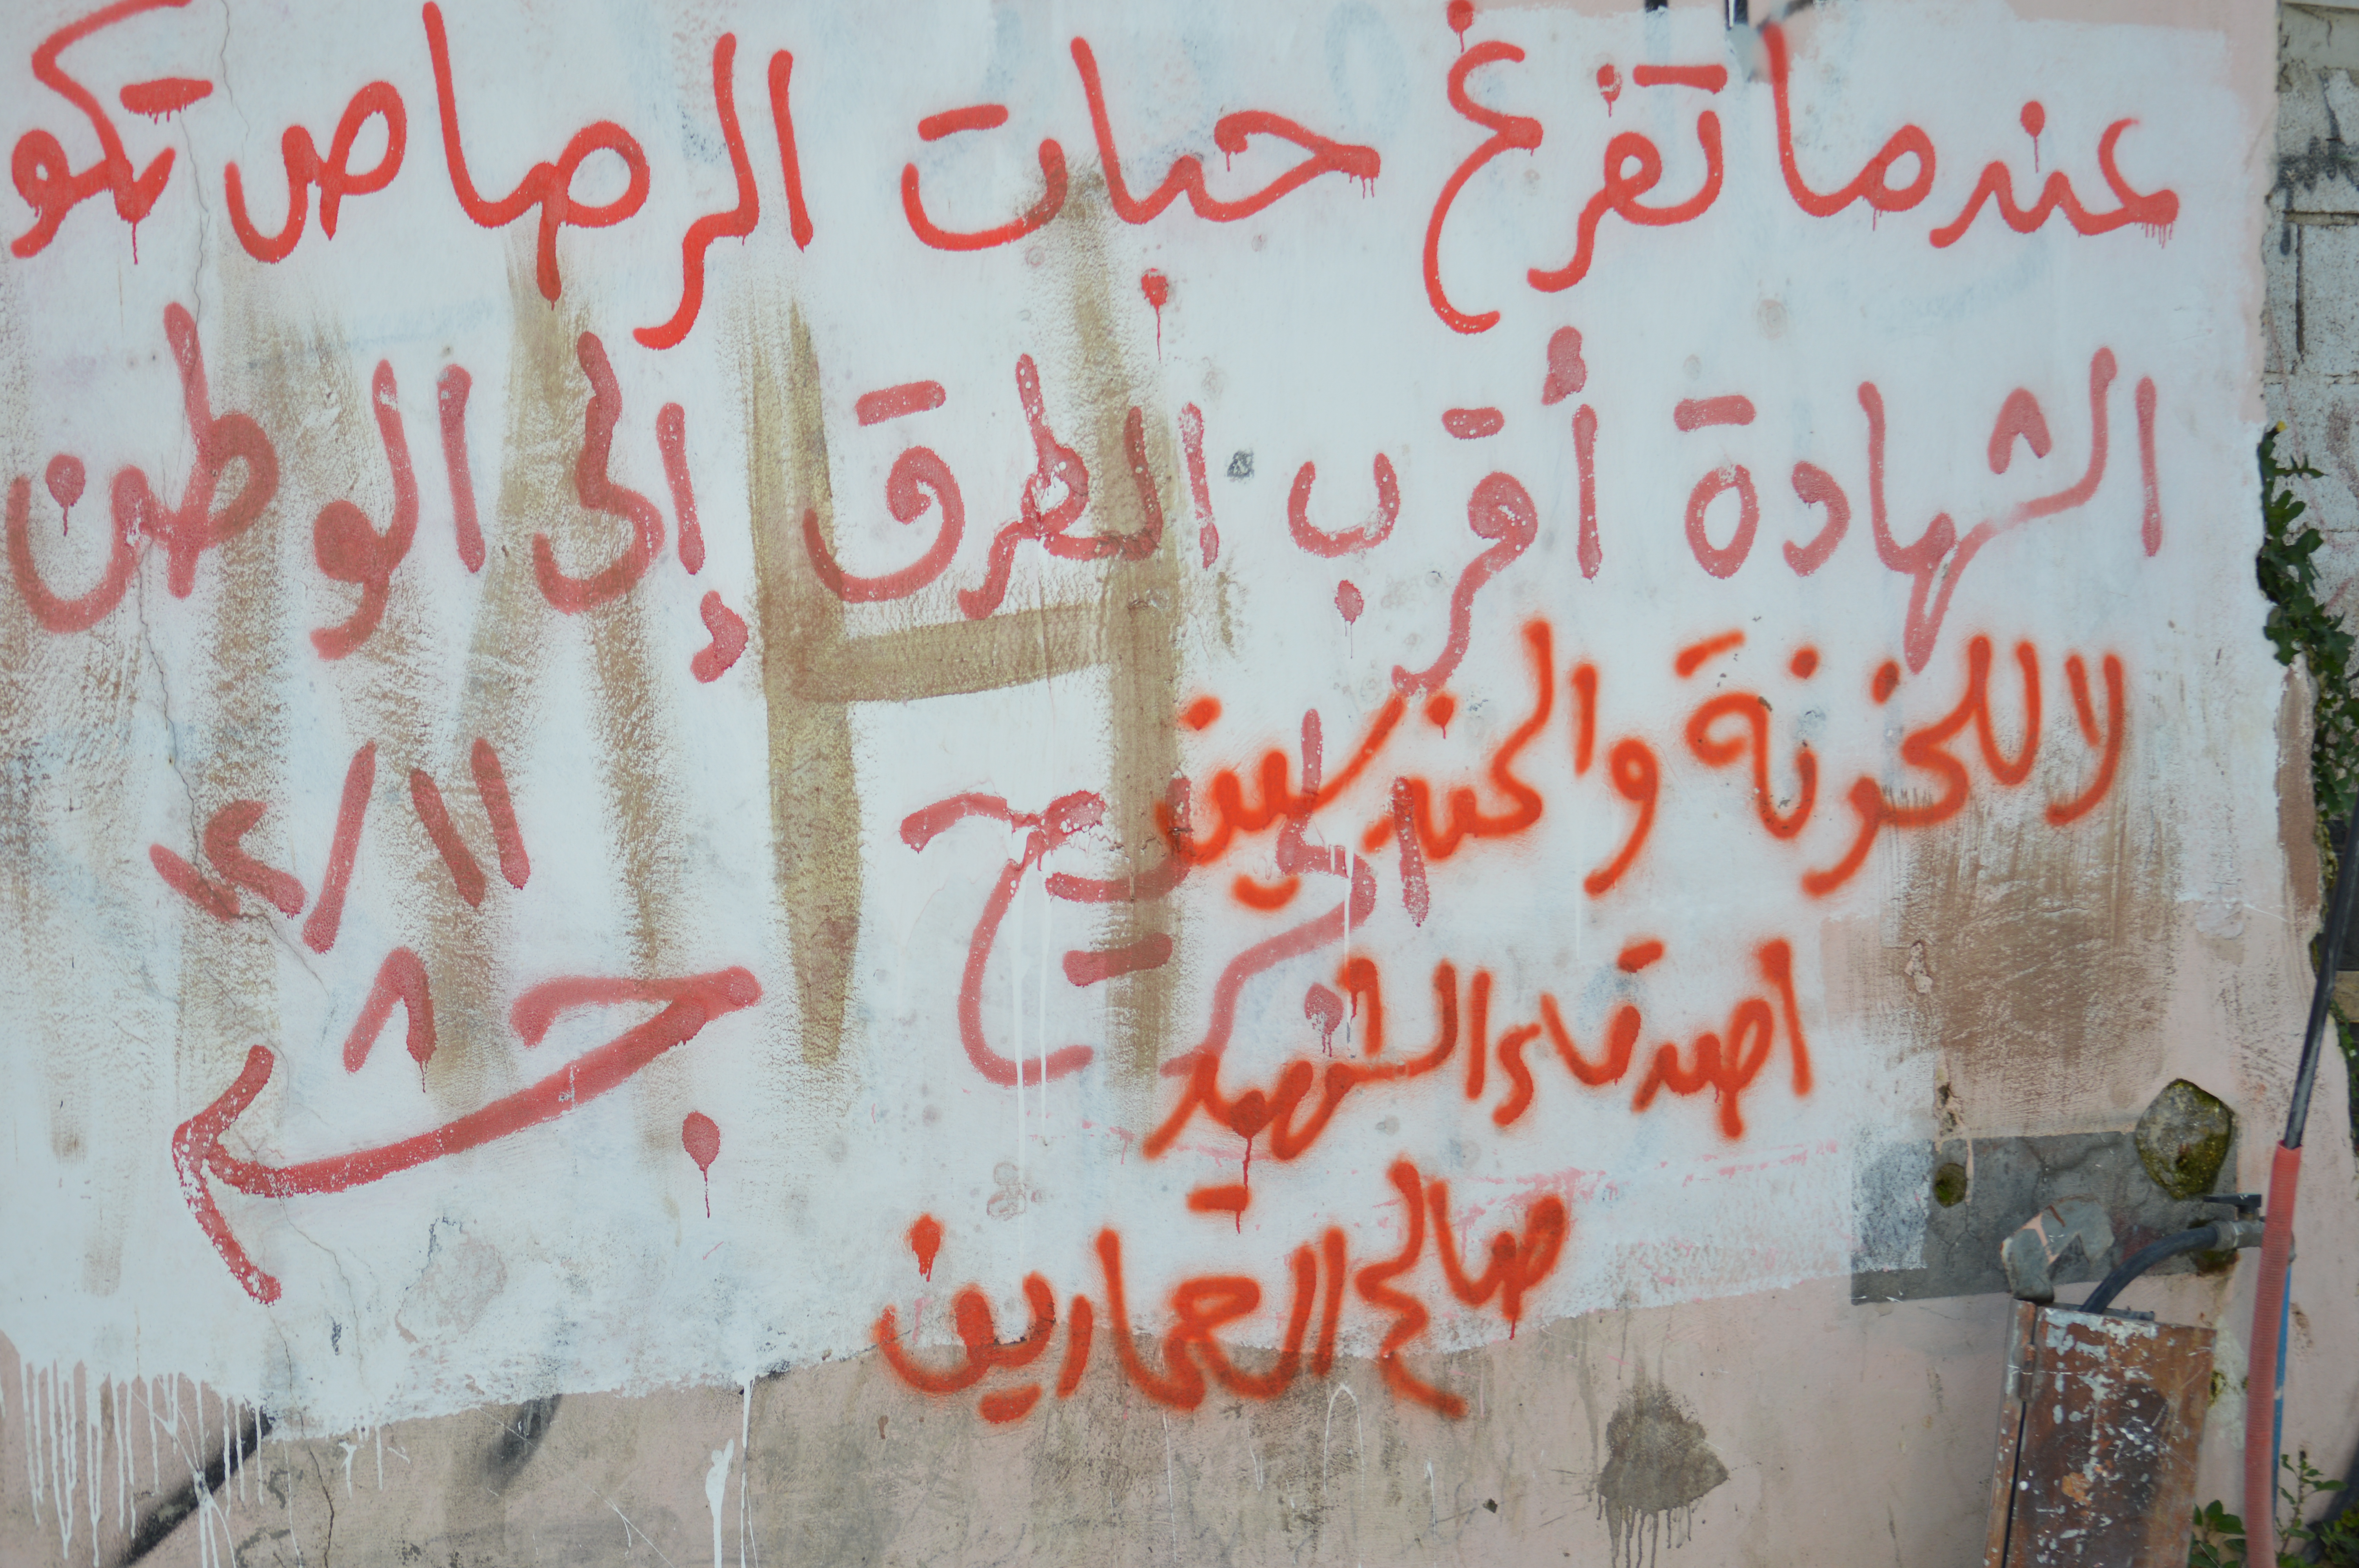 عندما تفرغ حبات الرصاص تكو
الشهادة أقرب الطرق إلى الوطن
لا للخونة والمندسين
اصدقاء الشهيد
صالح العمارين